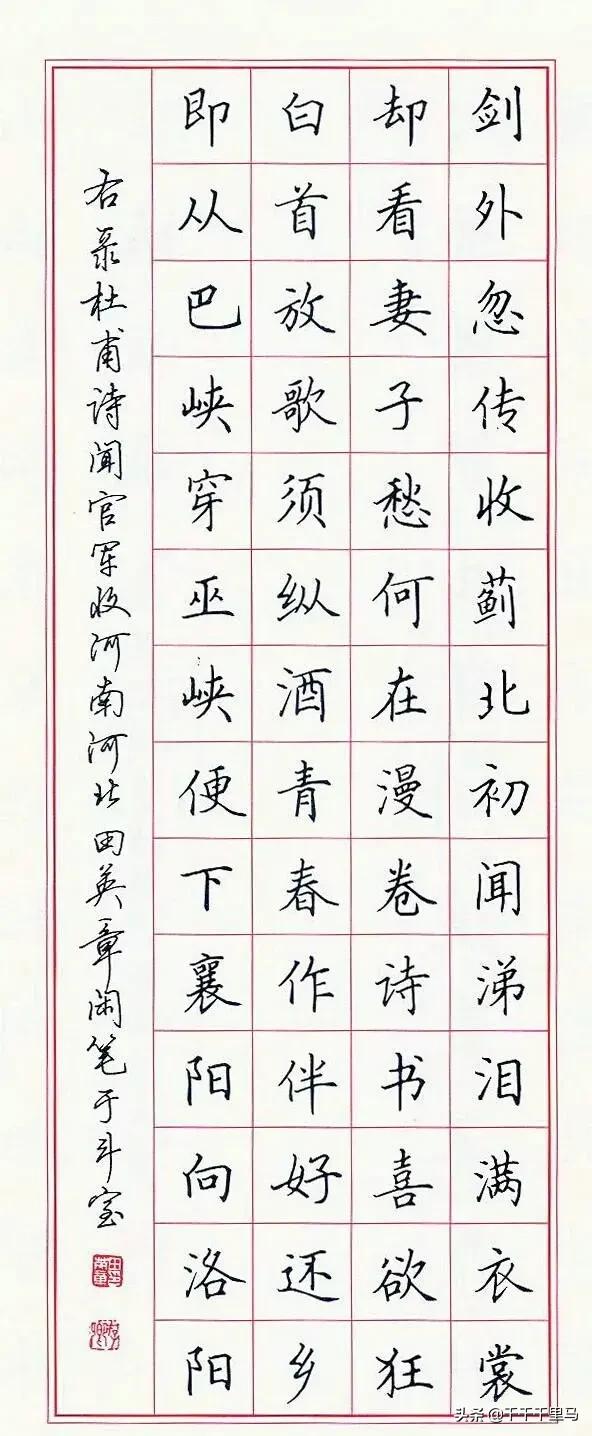 剑外忽传收蓟北初闻涕泪满衣裳
却看妻子愁何在漫卷诗书喜欲狂
白首放歌须纵酒青春作伴好还乡
即从巴峡穿巫峡便下襄阳向洛阳
右录杜甫诗闻官军收河南河北田英章闲笔于斗室
头条 @千千千里马